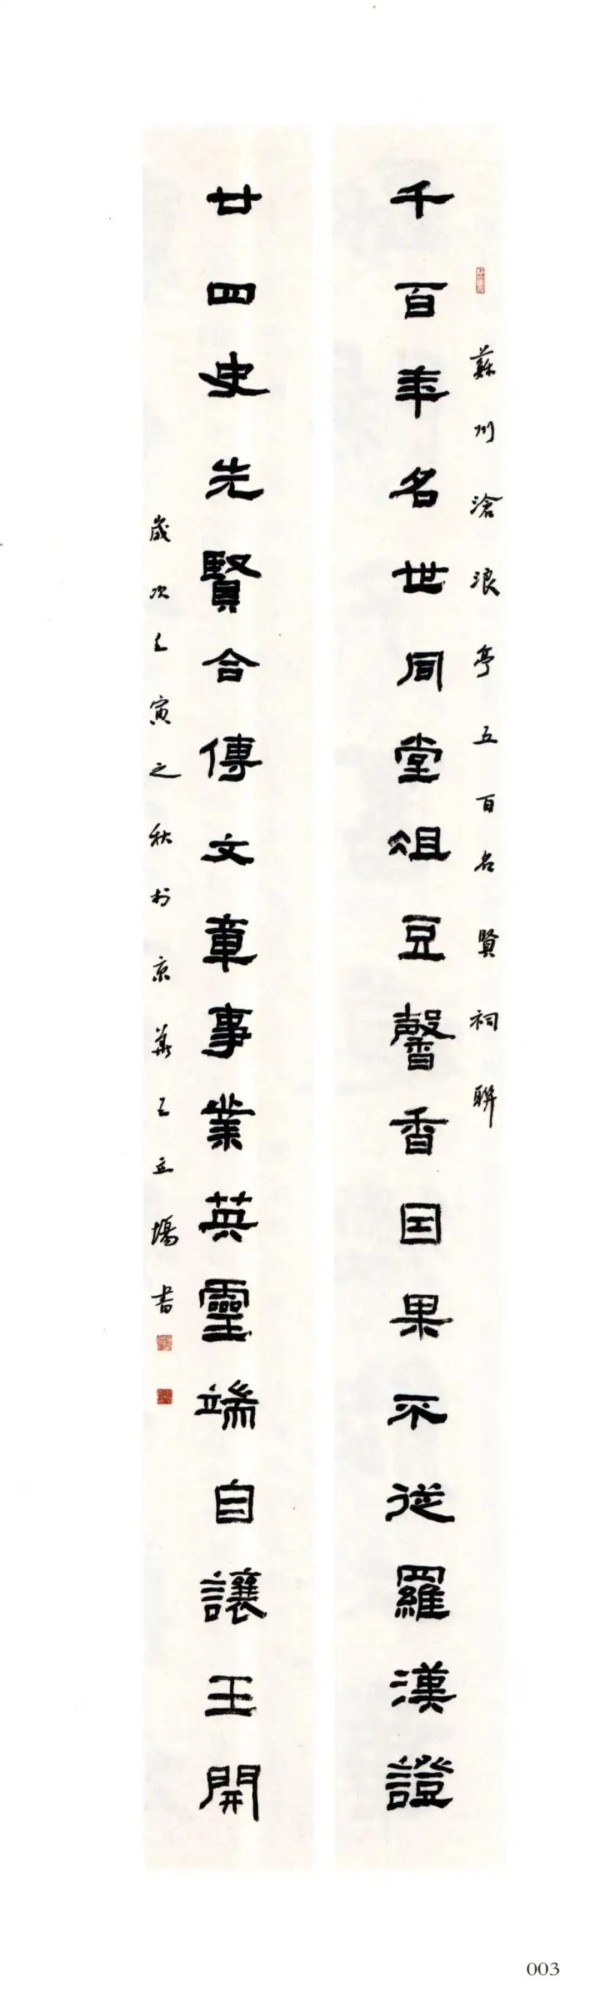 蘇州滄浪亭五百名賢祠聯
千百年名世同堂俎豆馨香因果不從羅漢證
廿四史先賢合傳文章事業英靈端自讓王開
歲次壬寅之秋於京華王立場書
003